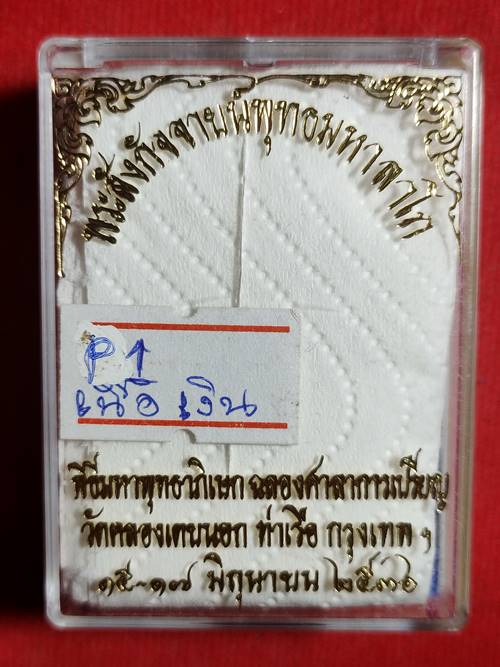 พระสังกัจจายน์พุทธมหาลาโภ
P1
เนื้อ เงิน
พิธีมหาพุทธาภิเษก ฉลองศาลาการเปรียญ
วัดคลองเตยนอก ท่าเรือ กรุงเทพ ฯ
๑๕-๑๗ มิถุนายน ๒๕๓๖